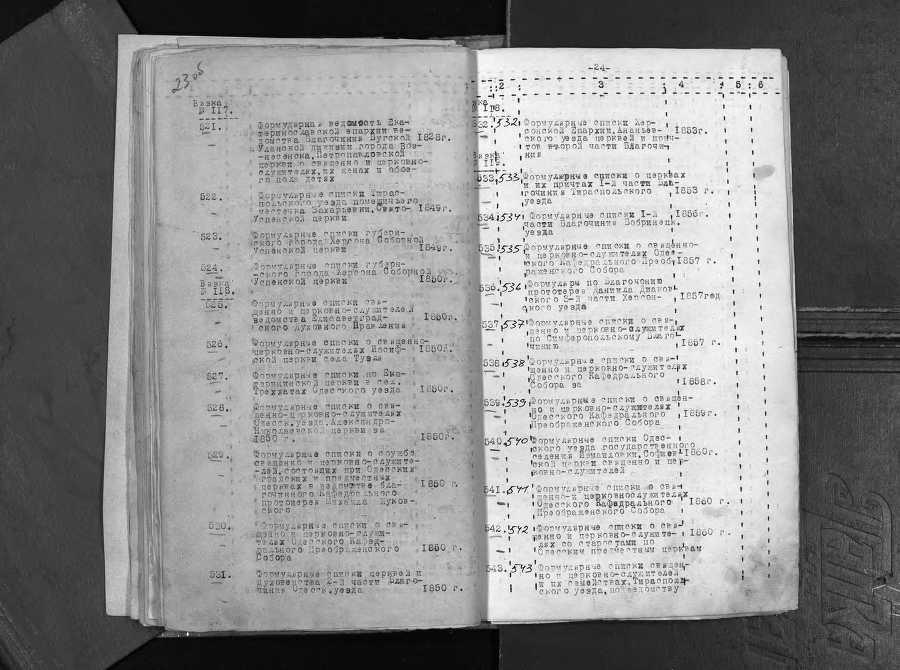 23об
Вязка
№ 117.
521. Формулярная ведомость Ека-
теринославской епархии ве-
домства Благочиния Бугской 1828г.
Уланской дивизии города Воз-
-несенска, Петропавловской
церкви о священно и церковно-
служителях, их женах и обое-
го пола детях
522. Формулярные списки Тирас-
польского уезда помещичьего
местечка Захарьевки, Свято- 1849г.
Успенской церкви
523. Формулярные списки губерн-
ского города Херсона Соборной
Успенской церкви 1849г.
524. Формулярные списки губерн-
-ского города Херсона Соборной
Успенской церкви 1850г.
Вязка
№ 118.
525. Формулярные списки свя-
щенно и церковно-служителей
ведомства Елисаветград- 1850г.
ского Духовного Правления
526. Формулярные списки о священно-
церковно-служителях Иосиф- 1850г.
ской церкви села Тузлы
527. Формулярные списки по Ека-
терининской церкви в сел.
Треххатах Одесского уезда 1850г.
528. Формулярные списки о свя-
щенно-церковно-служителях
Одесск.уезда, Александро-
Николаевской церкви за
1850 г. 1850г.
529. Формулярные списки о службе
священно и церковно-служите-
-лей, состоящих при Одесских
градских и предместных
церквах в ведомстве бла- 1850 г.
гочинного Кафедрального
протоиерея Михаила
530. Формулярные списки о свя-
щенно и церковно-служи-
телях Одесского Кафед-
рального Преображенского 1850 г.
Собора
531. Формулярные списки церквей и
духовенства 2-й части Благо-
чиния Одесск.уезда 1850 г.
-24-
2 3 4 5 6
№ 118.
532 Формулярные списки Хер-
сонской Епархии, Ананьев- 1853г.
ского уезда церквей и прич-
тов второй части Благочи-
ния
533. 533 Формулярные списки о церквах
и их причтах I-й части Бла-
гочиния Тираспольского 1853 г.
уезда
534 534 Формулярные списки I-й 1856г.
части Благочиния Бобринецк.
уезда
535 535 Формулярные списки о священно-
и церковно-служителях Одес-
ского Кафедрального Преоб- 1857 г.
раженского Собора
536. 536 Формуляры по Благочинию
протоиерея Даниила Диаков-
ского 3-й части Херсон- 1857год
ского уезда
537 537 Формулярные списки о свя-
щенно и церковно-служителях
по Симферопольскому Благо-
чинию 1857 г.
538. 538 Формулярные списки о свя-
щенно и церковно-служителях
Одесского Кафедрального
Собора за 1858г.
539. 539 Формулярные списки о священ-
но и церковно-служителях
Одесского Кафедрального 1859г.
Преображенского Собора
540. 540 Формулярные списки Одес-
ского уезда государственного
селения Измаиловки, Софиев- 1860г.
ской церкви священно и цер-
ковно-служителей
541. 541 Формулярные списки о свя-
щенно-и церковнослужителях
Одесского Кафедрального 1860 г.
Преображенского Собора
542. 542 Формулярные списки о свя-
щенно и церковно-служите- 1860 г.
лях со старостами по
Одесским предместным церквам
543. 543 Формулярные списки священ-
но и церковно-служителей
и их семействах, Тирасполь-
ского уезда, по ведомству